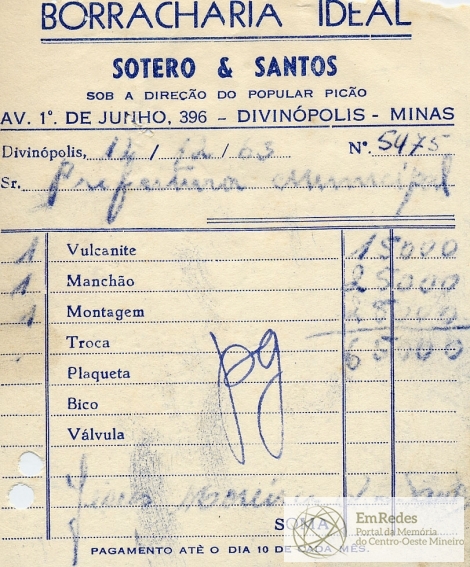 BORRACHARIA IDEAL
SOTERO & SANTOS
SOB A DIREÇÃO DO POPULAR PICÃO
AV. 1º. DE JUNHO, 396 - DIVINÓPOLIS - MINAS
Divinópolis, / 12 / 63 Nº. 5475
Sr. Prefeitura Municipal
1 Vulcanite 15000
1 Manchão 25000
1 Montagem 25000
Troca 65000
Plaqueta
pg
Bico
Válvula
SOMA
PAGAMENTO ATÉ O DIA 10 DE CADA MÊS.
EmRedes
Portal da Memória
do Centro-Oeste Mineiro